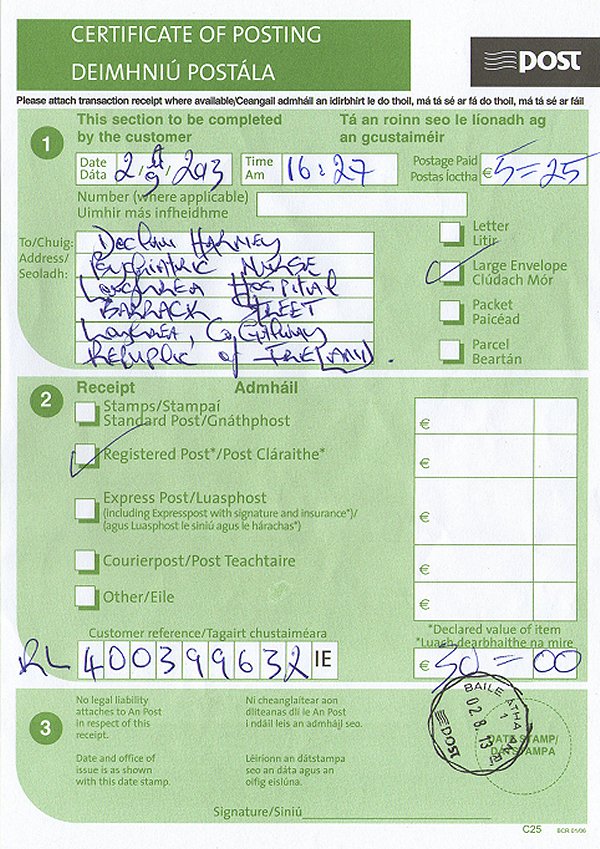 CERTIFICATE OF POSTING
DEIMHNIÚ POSTÁLA
post
Please attach transaction receipt where available/Ceangail admháil an idirbhirt le do thoil, má tá sé ar fá do thoil, má tá sé ar fáil
1
This section to be completed by the customer
Tá an roinn seo le líonadh ag an gcustaiméir
Date
Dáta
2. 8. 2013
Time
Am
16:27
Postage Paid
Postas íoctha
€5=25
Number (where applicable)
Uimhir más infheidhme
To/Chuig:
Address/
Seoladh:
Declan Harney
Psychiatric Nurse
Loughrea Hospital
Barrack Street
Loughrea, Co. Galway
Republic of Ireland.
Letter
Litir
Large Envelope
Clúdach Mór
Packet
Paicéad
Parcel
Beartán
2
Receipt Admháil
Stamps/Stampaí
Standard Post/Gnáthphost
€
Registered Post*/Post Cláraithe*
€
Express Post/Luasphost
(including Expresspost with signature and insurance*)/
(agus Luasphost le siniú agus le hárachas*)
€
Courierpost/Post Teachtaire
€
Other/Eile
€
Customer reference/Tagairt chustaiméara
RL 400399632 IE
*Declared value of item
*Luach dearbhaithe na míre
€30=00
3
No legal liability
attaches to An Post
in respect of this
receipt.
Ní cheanglaítear aon
dliteanas dlí le An Post
i ndáil leis an admháil seo.
Date and office of
issue is as shown
with this date stamp.
Léiríonn an dátstampa
seo an dáta agus an
oifig eisiúna.
BAILE ÁTHA
1
02.8.13
POST
DATE STAMP/
DÁTSTAMPA
Signature/Siniú
C25
BCR 01/06